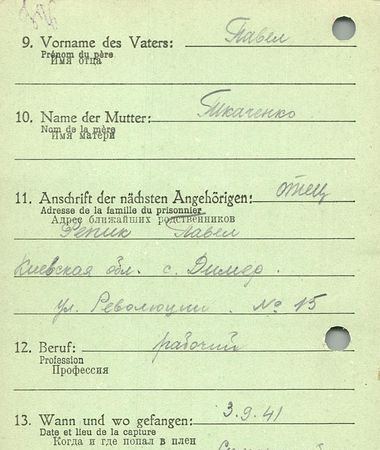 9. Vorname des Vaters: Павел
Prénom du père
Имя отца
10. Name der Mutter: Ткаченко
Nom de la mère
Имя матери
11. Anschrift der nächsten Angehörigen: отец
Adresse de la famille du prisonnier
Адрес ближайших родственников
Репик Павел
Киевская обл. с. Димер.
ул. Революции. № 15
12. Beruf: рабочий
Profession
Профессия
13. Wann und wo gefangen: 3.9.41
Date et lieu de la capture
Когда и где попал в плен